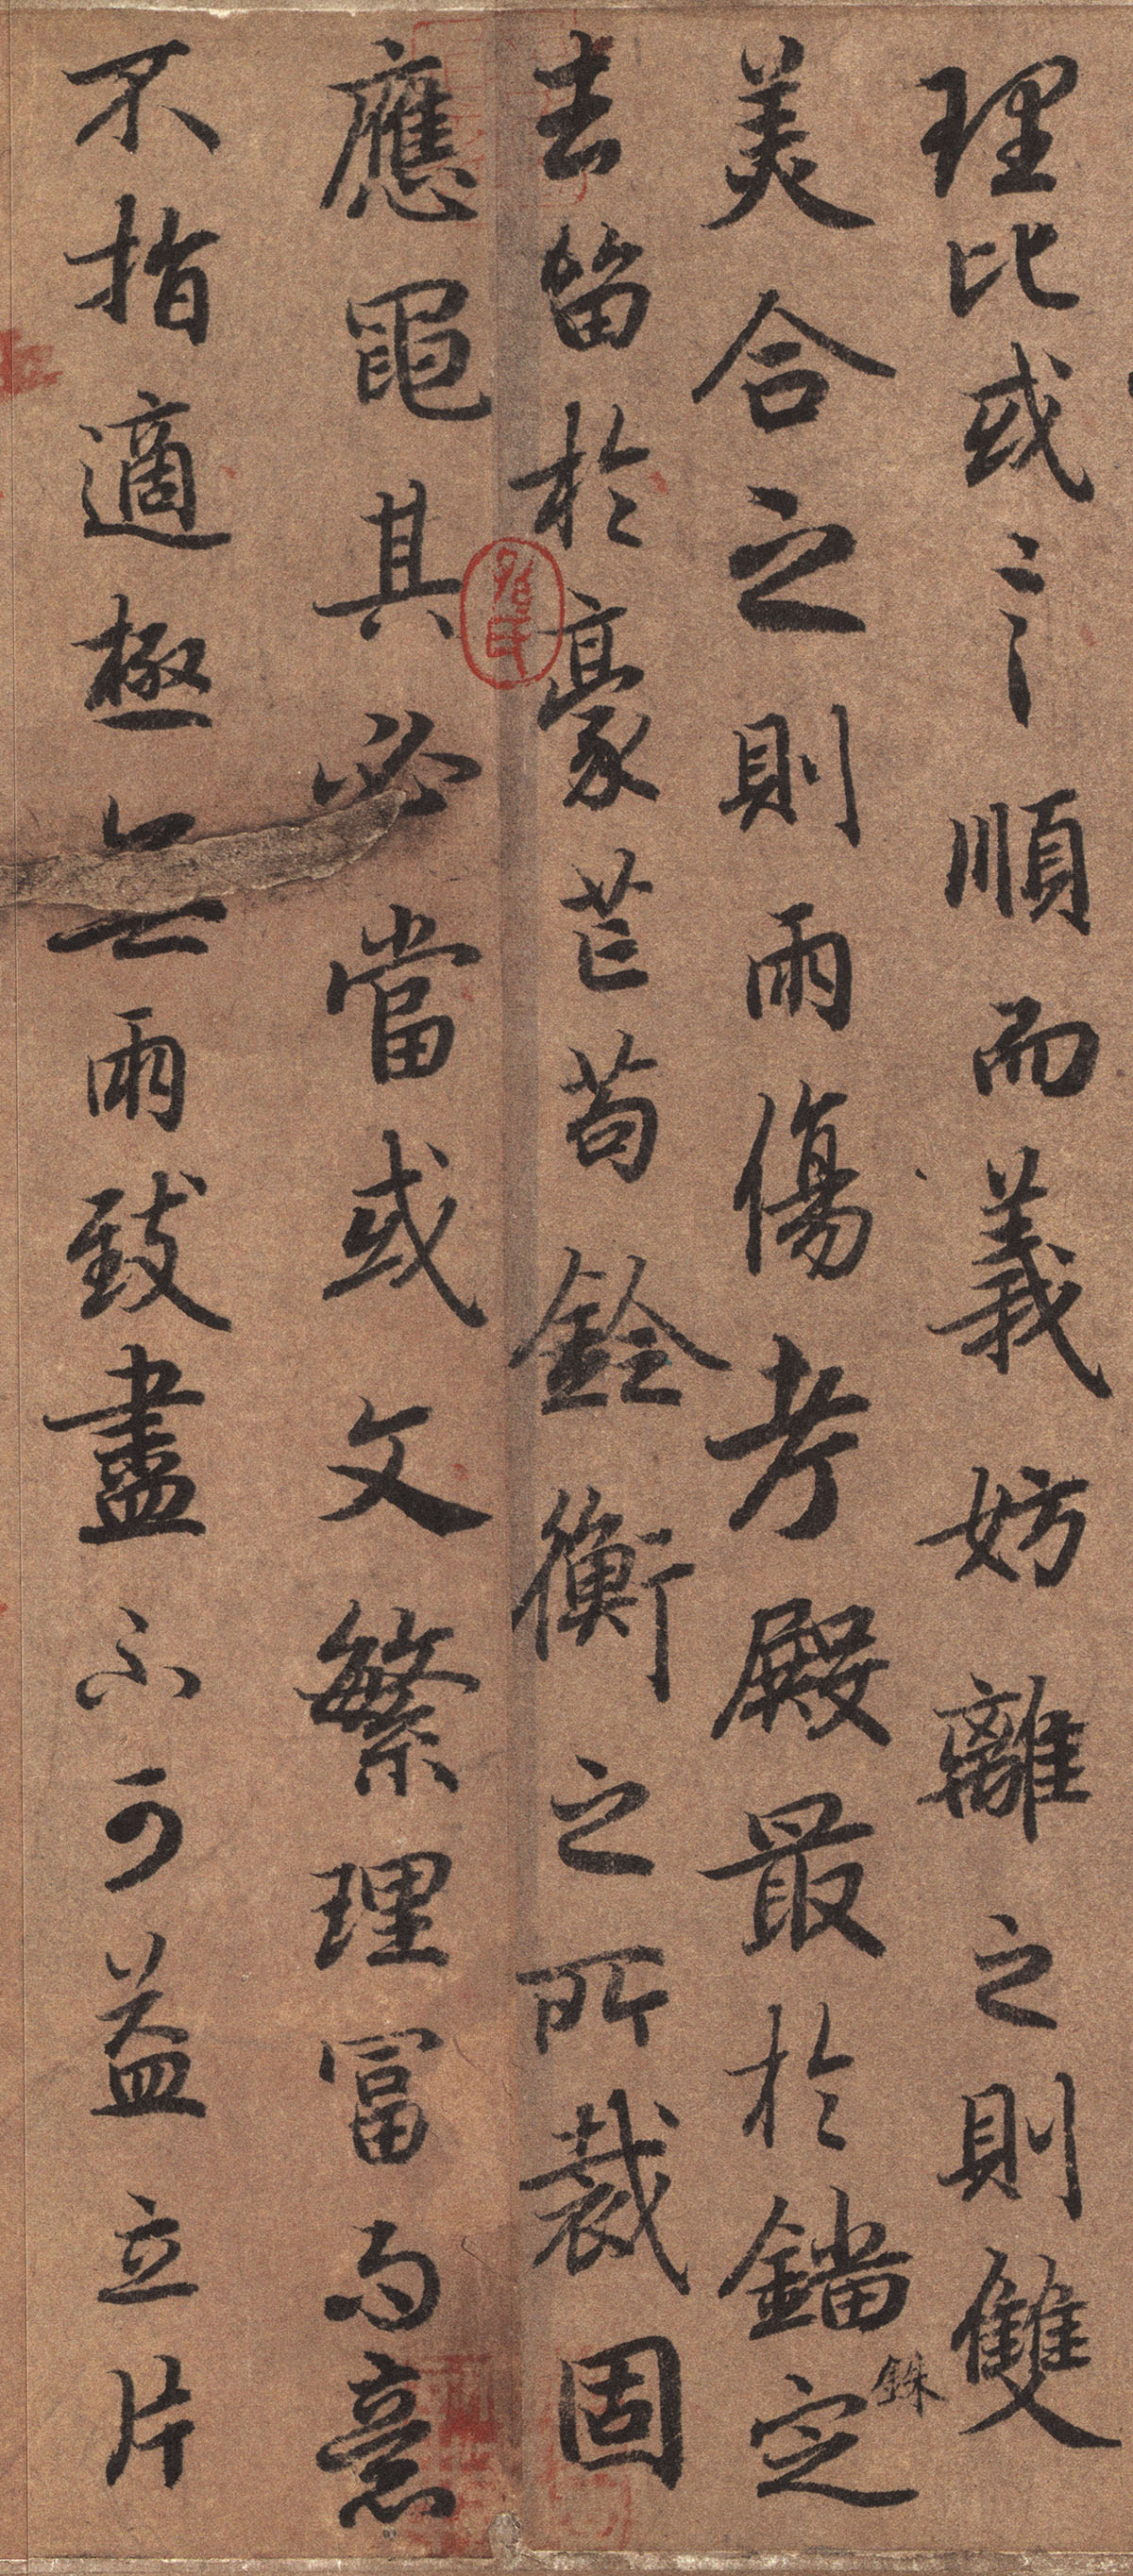 理比或言順而義妨離之則雙
美合之則兩傷考殿最於錙銖定
去留於豪芒苟銓衡之所裁固
應黽其必當或文繁理富而意
不指適極無兩致盡不可益立片